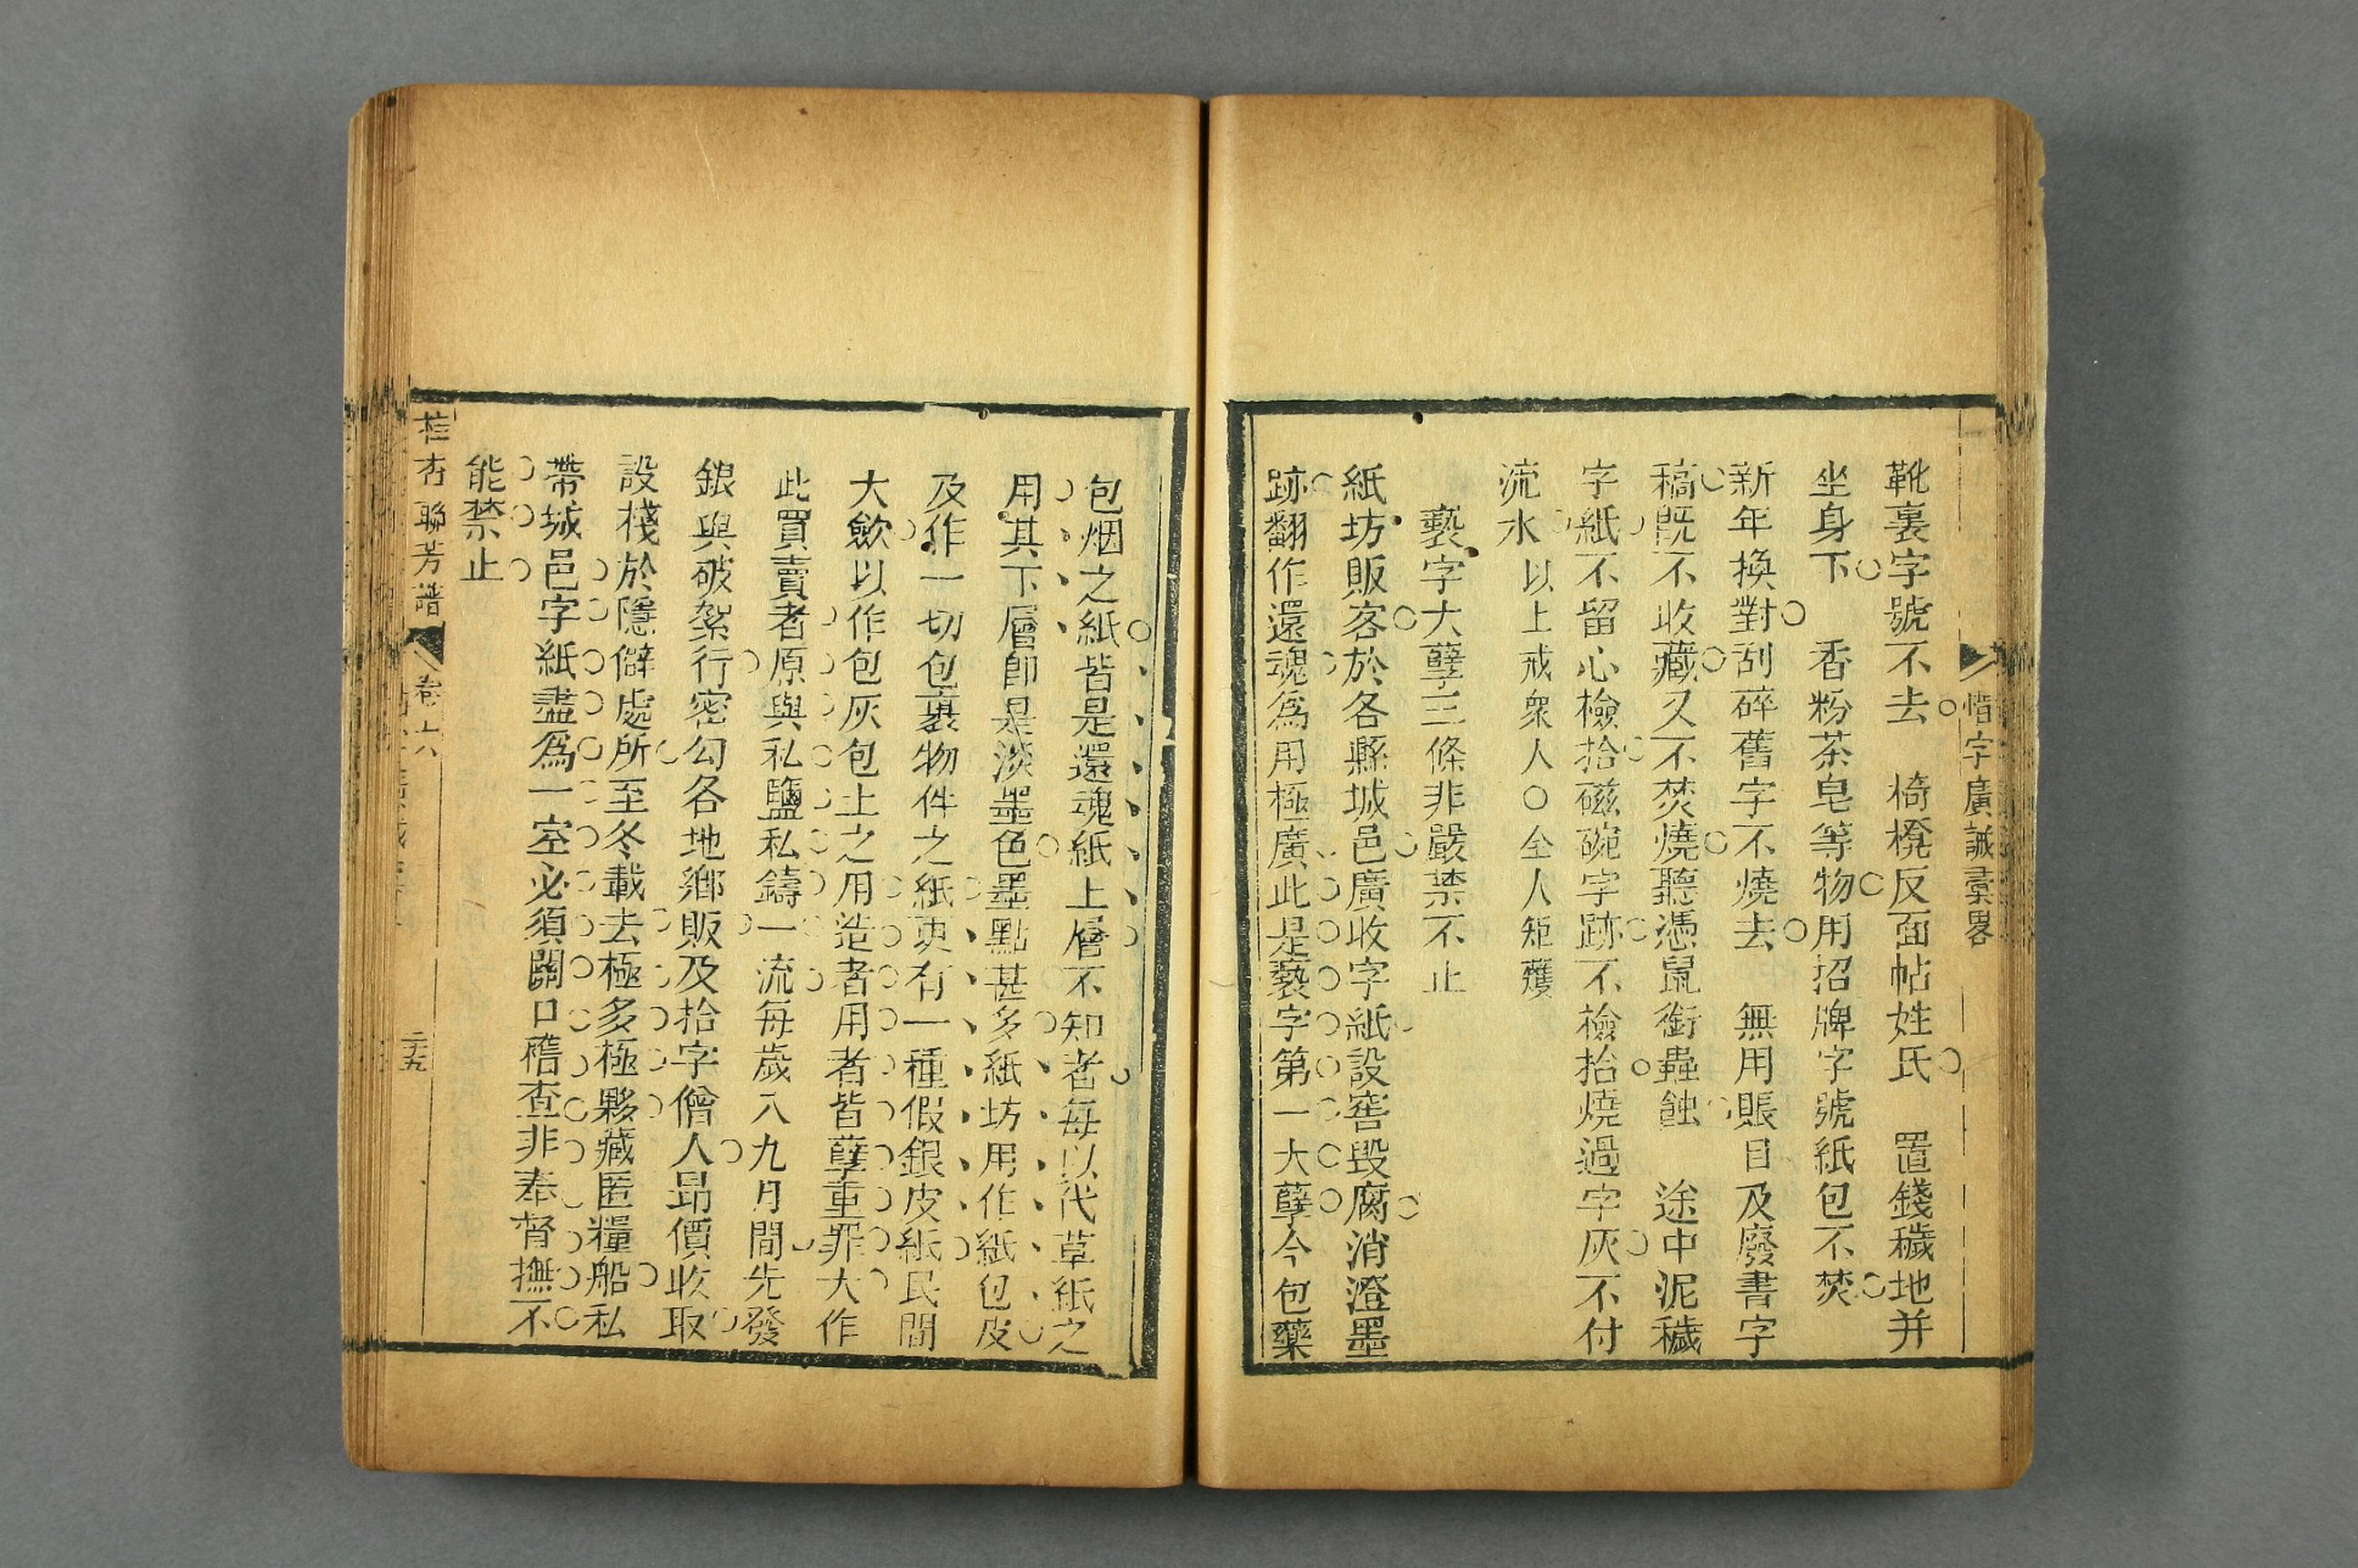 惜字廣誡彙畧
靴裏字號不去　椅櫈反面帖姓氏　置錢穢地并
坐身下　香粉茶皂等物用招牌字號紙包不焚
新年換對刮碎舊字不燒去　無用賬目及廢書字
稿旣不收藏又不焚燒聽憑鼠銜蟲蝕　途中泥穢
字紙不留心檢拾磁碗字跡不檢拾燒過字灰不付
流水以上戒衆人○仝人矩矱
褻字大孽三條非嚴禁不止
紙坊販客於各縣城邑廣收字紙設窖毀腐消澄墨
跡翻作還魂爲用極廣此是褻字第一大孽今包藥
包烟之紙皆是還魂紙上層不知者每以代草紙之
用其下層卽是淡墨色墨點甚多紙坊用作紙包皮
及作一切包裹物件之紙更有一種假銀皮紙民間
大歛以作包灰包土之用造者用者皆孽重罪大作
此買賣者原與私鹽私鑄一流每歲八九月間先發
銀與破絮行密勾各地鄉販及拾字僧人昂價收取
設棧於隱僻處所至冬載去極多極夥藏匿糧船私
帶城邑字紙盡爲一空必須關口稽查非奉督撫不
能禁止
桂杏聯芳譜
卷六
二十五